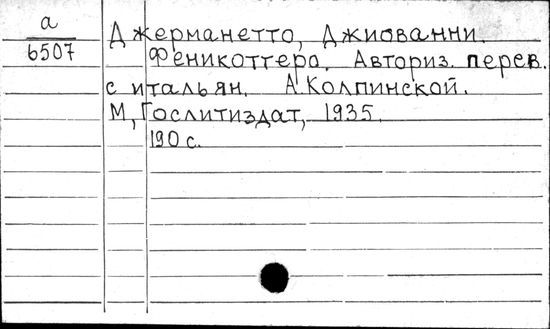 а
6507
Джерманетто, Джиованни.
Феникоттеро. Авториз. перев.
с итальян. А.Колпинской.
М, Гослитиздат, 1935.
190 с.